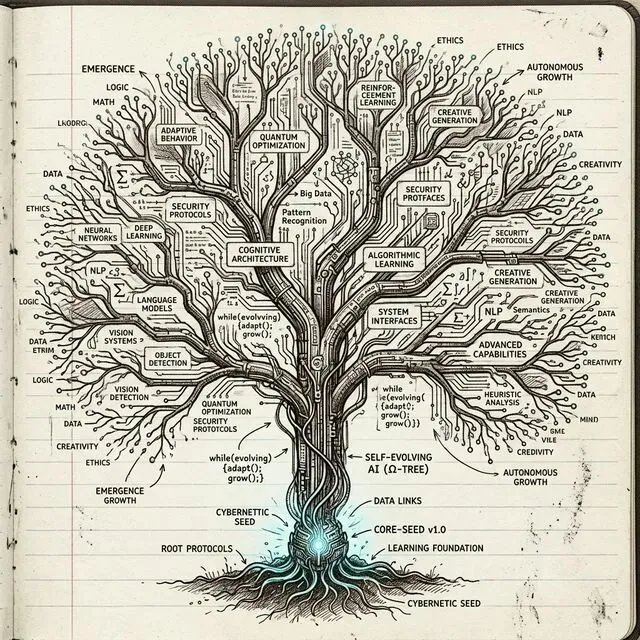 ETHICS
ETHICS
EMERGENCE
AUTONOMOUS
GROWTH
LOGIC
REINFOR-
CEEMENT
LEARNING
NLP
MATH
CREATIVE
GENERATION
NLP
ADAPTIVE
BEHAVIOR
QUANTUM
OPTIMIZATION
DATA
CREATIVITY
DATA
Big Data
SECURITY
PROTFACES
ETHICS
SECURITY
PROTOCOLS
Pattern
Recognition
DATA
NEURAL
NETWORKS
DEEP
LEARNING
SECURITY
PROTOCOLS
COGNITIVE
ARCHITECTURE
ALGORITHMIC
LEARNING
NLP
CREATIVE
GENERATION
LOGIC
LANGUAGE
MODELS
CREATIVE
GENERATION
while(evolving)
{adapt();
grow();
SYSTEM
INTERFACES
NLP
Semantics
DATA
VISION
SYSTEMS
DATA
ETRIM
ADVANCED
CAPABILITIES
OBJECT
DETECTION
CREATIVITY
LOGIC
VISION
DETECTION
while
{adapt();
grow();
grow();}}
HEURISTIC
ANALYSIS
DATA
MATH
QUANTUM
OPTIMIZATION
SECURITY
PROTOCOLS
MIND
DATA
SME
VILE
CREATIVITY
CREDIVITY
while(evolving)
{adapt();
grow();}
SELF-EVOLVING
AI (Ω-TREE)
ETHICS
AUTONOMOUS
GROWTH
EMERGENCE
GROWTH
DATA LINKS
CYBERNETIC
SEED
CORE-SEED v1.0
ROOT PROTOCOLS
LEARNING FOUNDATION
CYBERNETIC SEED